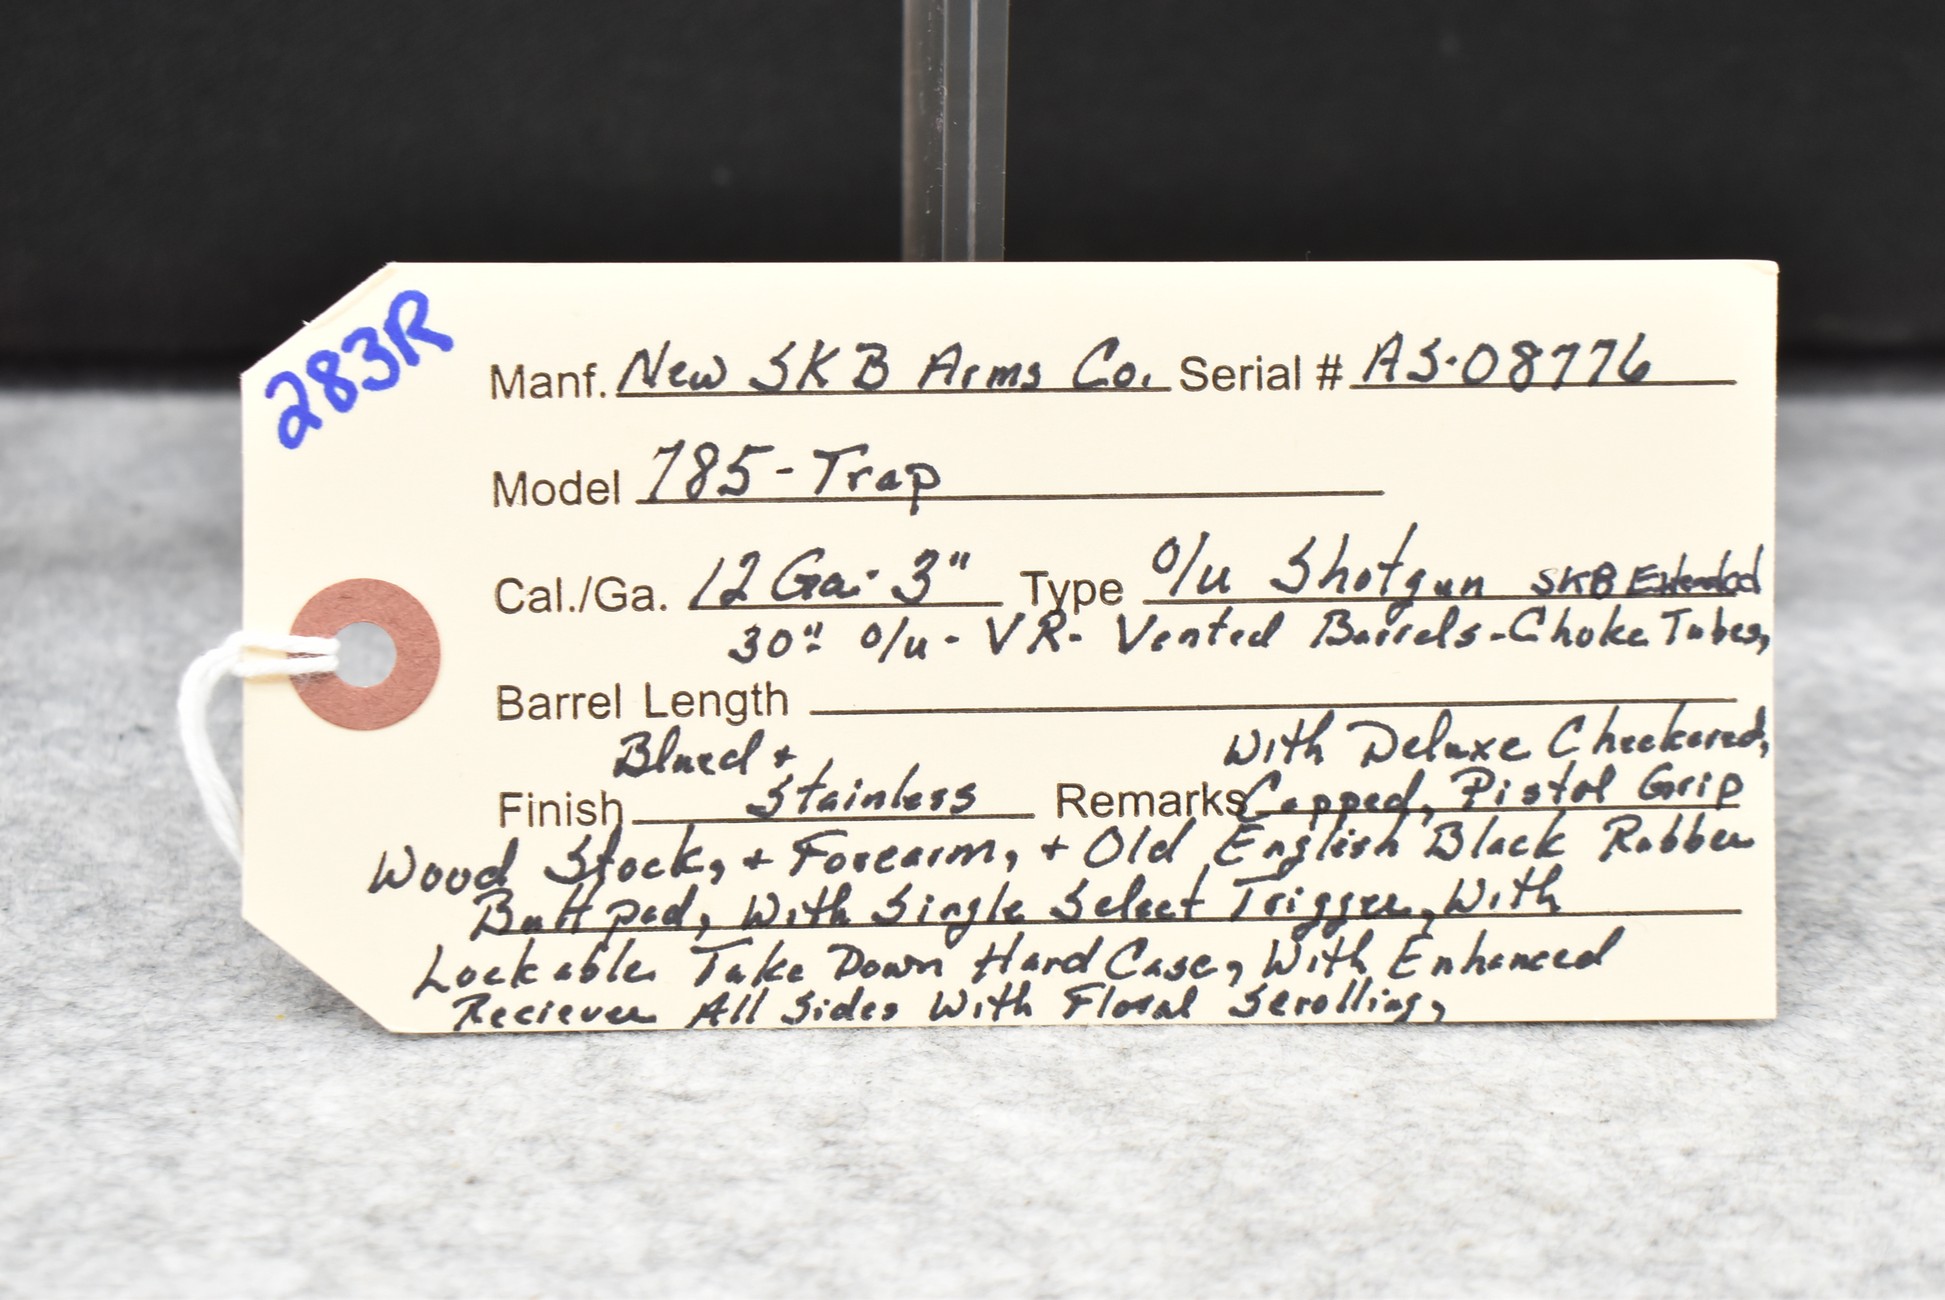 283R
Manf. New SKB Arms Co. Serial # AS-08776
Model 785-Trap
Cal./Ga. 12 Ga. 3" Type O/u Shotgun SKB Extended
30" O/u - VR- Vented Barrels-Choke Tubes,
Barrel Length
Blued +
With Deluxe Checkered,
Finish Stainless Remarks Capped, Pistol Grip
Wood Stock, + Forearm, + Old English Black Rubber
Butt pad, With Single Select Trigger, With
Lockable Take Down Hard Case, With Enhanced
Reciever All Sides With Floral Scrolling,